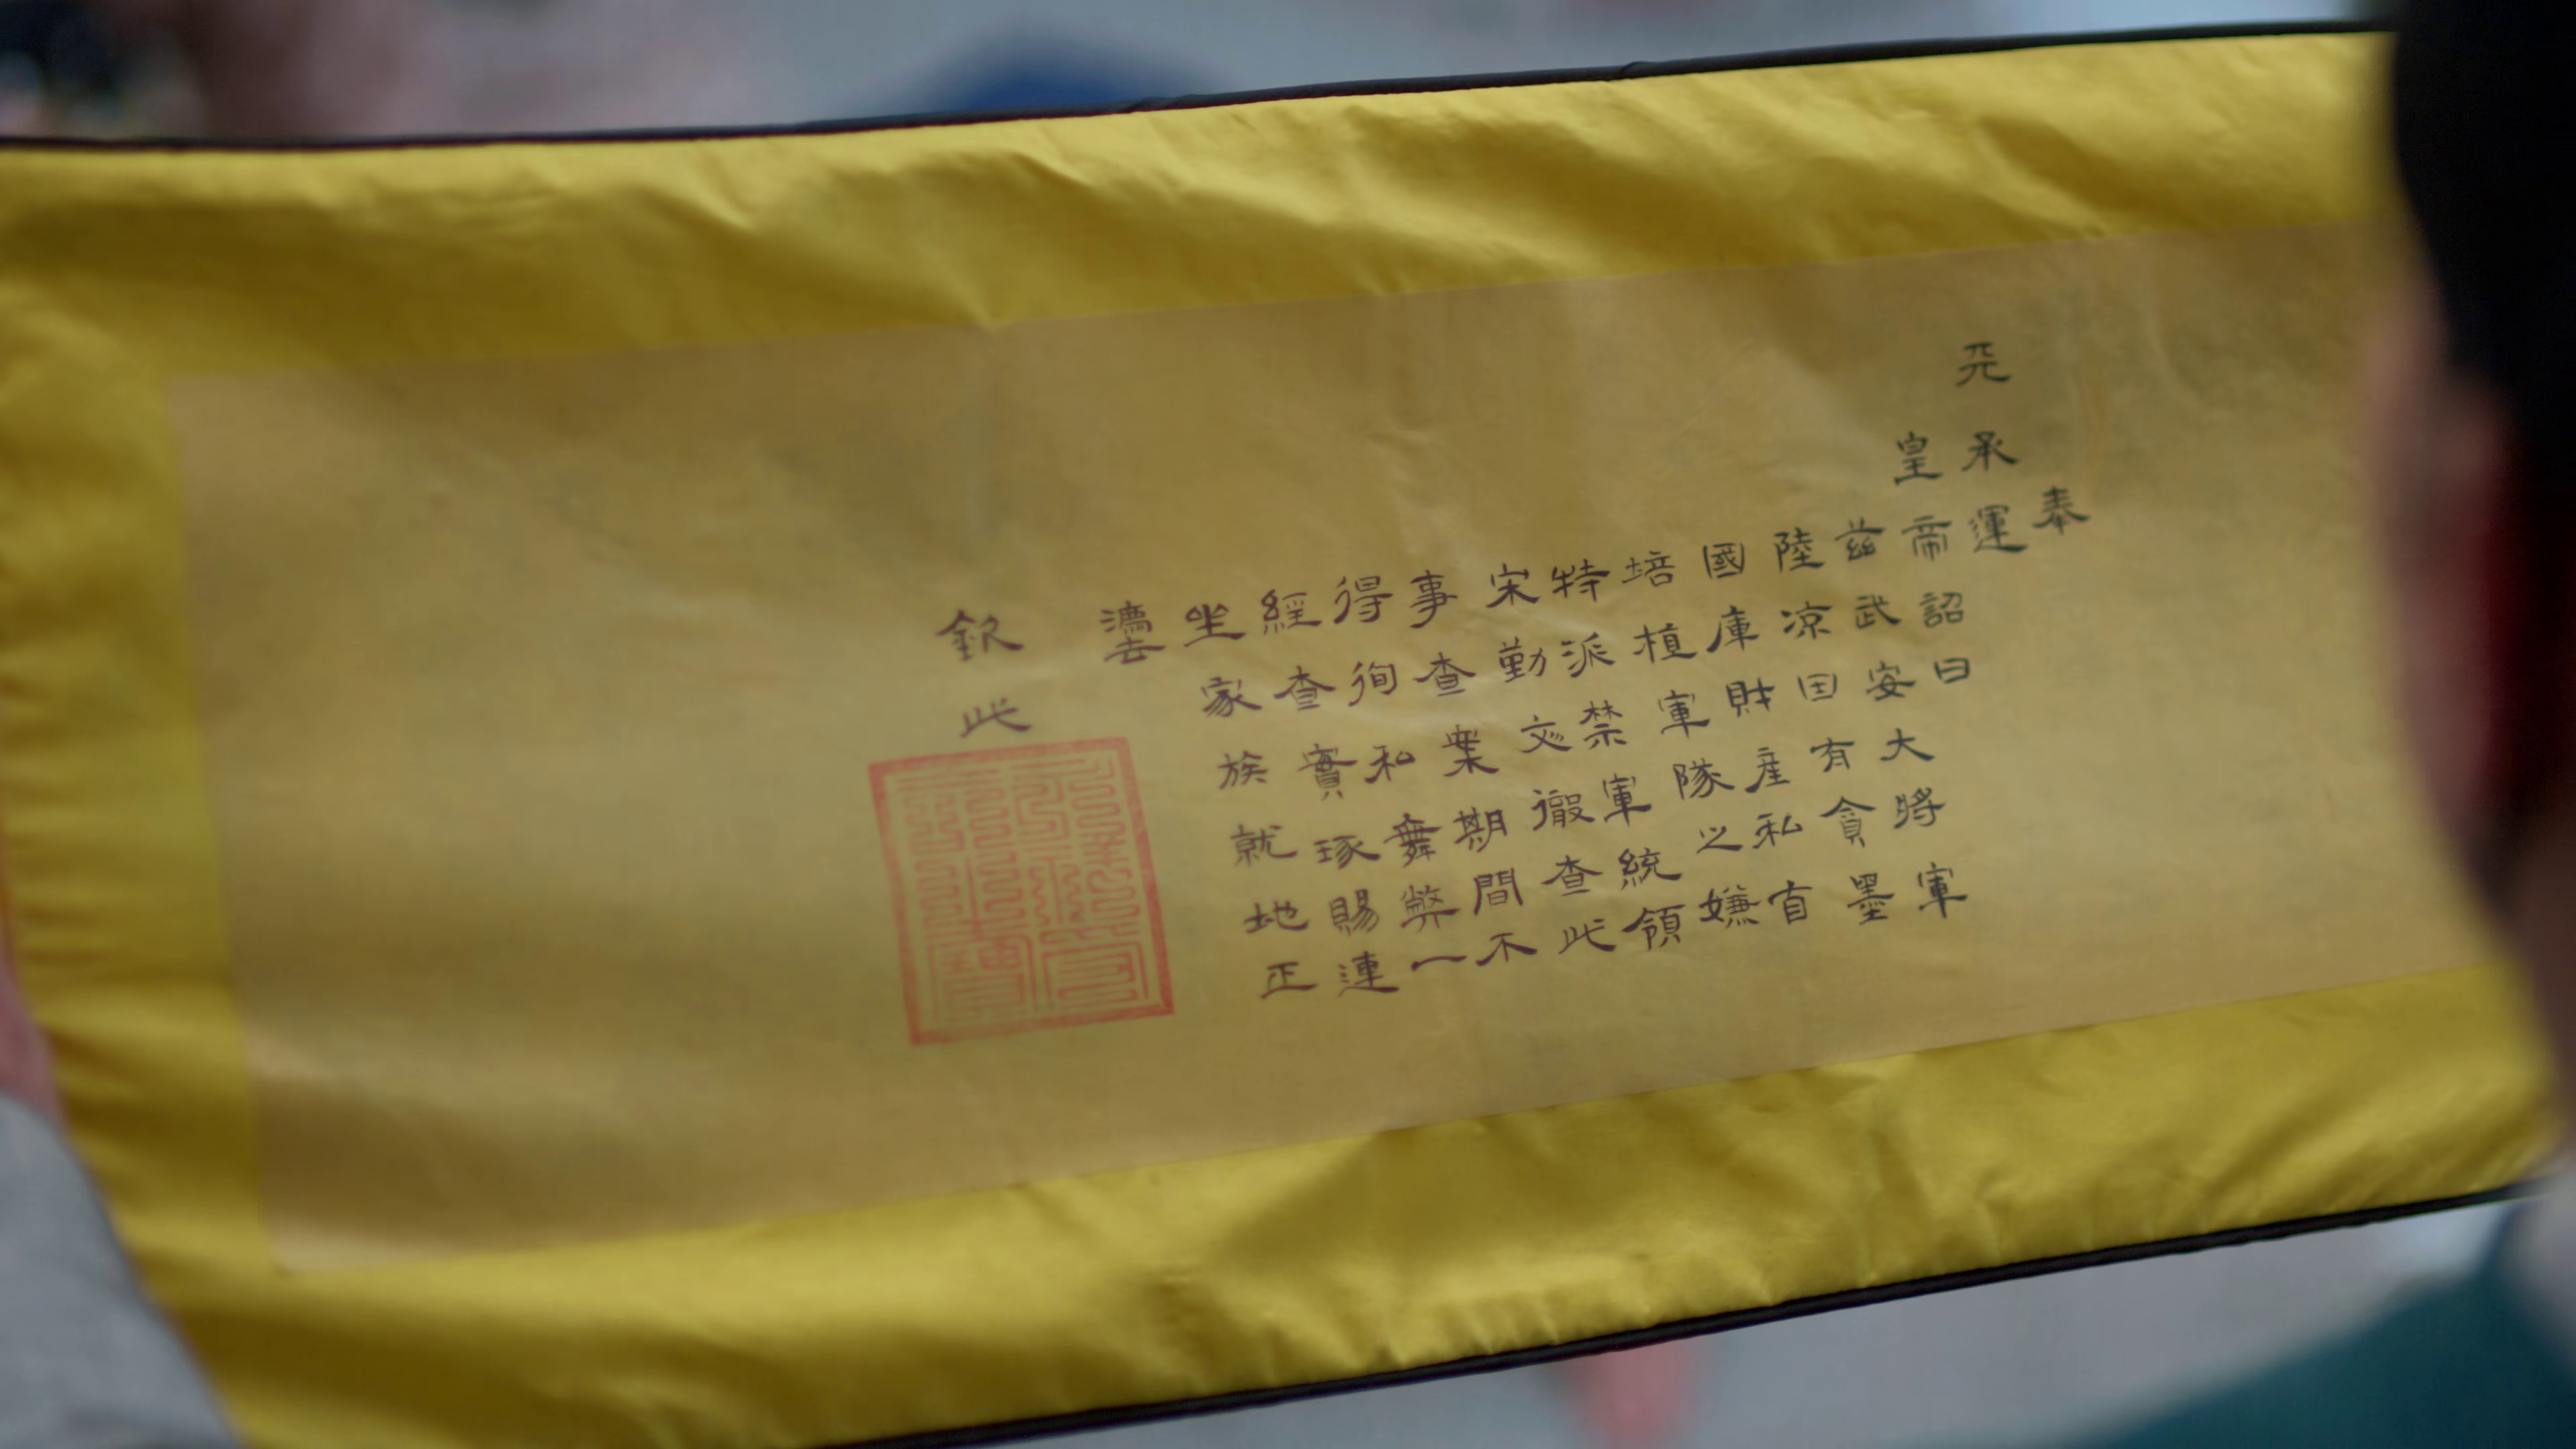 奉
天承運
皇帝詔曰
茲武安大將軍
陸凉田有貪墨
國庫財產私自
培植軍隊之嫌
特派禁軍統領
宋勤彣徹查此
事查案期間不
得徇私舞弊一
經查實琢賜連
坐家族就地正
灋
欽此